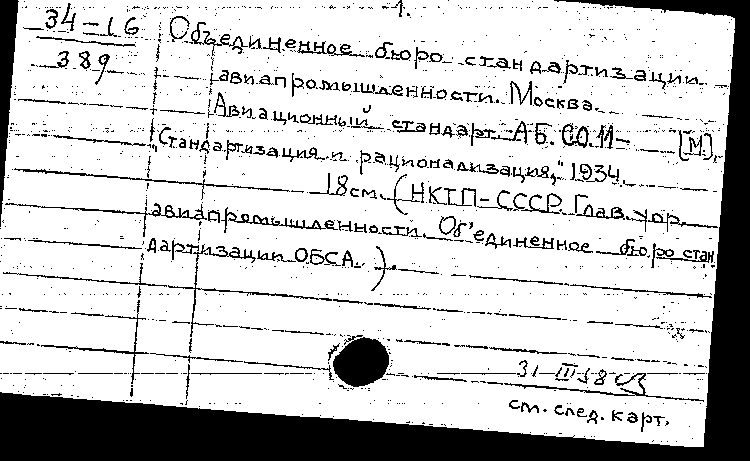 -1.
34-16
389
Объединенное бюро стандартизации
авиапромышленности. Москва.
Авиационный стандарт. АБ.СО.11- [М],
"Стандартизация и рационализация," 1934.
18см. (НКТП-СССР. Глав. упр.
авиапромышленности. Об'единенное бюро стан
дартизации ОБСА.).
31 III 58
см. след. карт.